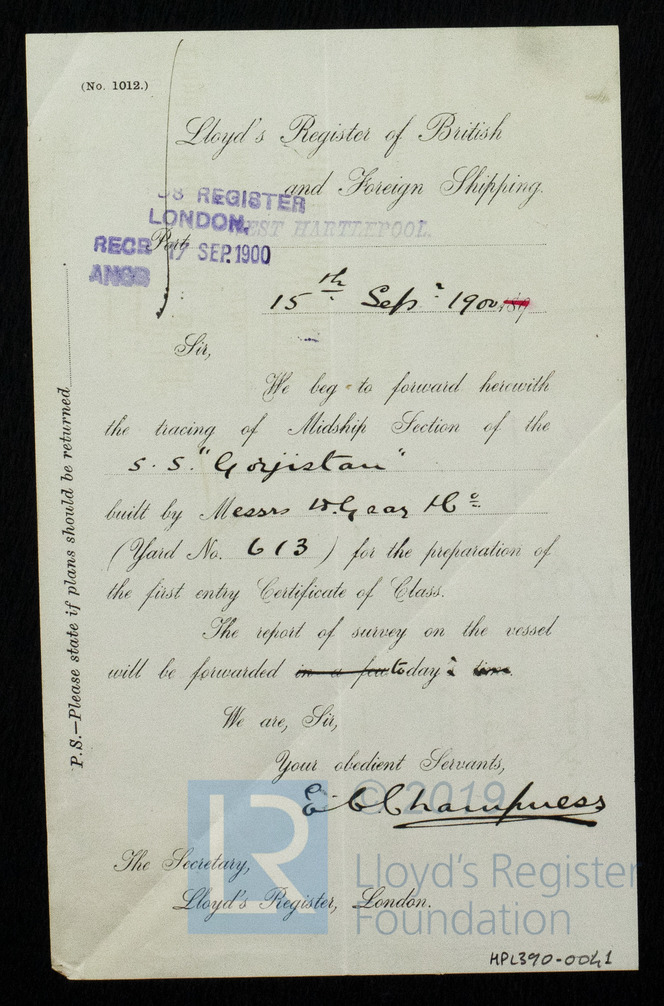 (No. 1012.)
Lloyd's Register of British
and Foreign Shipping.
REGISTER
LONDON.
RECD 17 SEP. 1900
ANSD
Port WEST HARTLEPOOL.
15th Sepr 1900 189
Sir,
We beg to forward herewith
the tracing of Midship Section of the
S.S. "Gorjistan"
built by Messrs W. Gray & Co
(Yard No. 613) for the preparation of
the first entry Certificate of Class.
The report of survey on the vessel
will be forwarded in a few to day's time.
We are, Sir,
Your obedient Servants,
E C Champness
The Secretary,
Lloyd's Register, London.
P.S.—Please state if plans should be returned
© 2019
LR
Lloyd's Register
Foundation
HPL390-0041